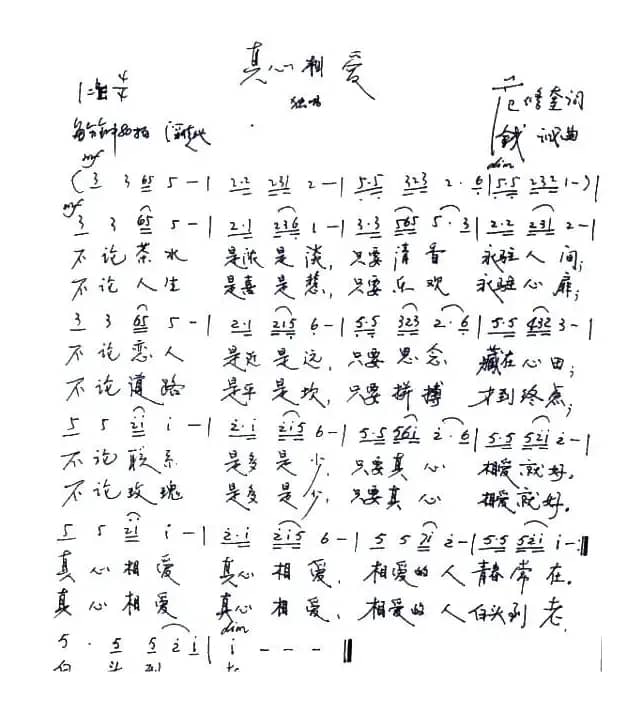 真心相爱
独唱
1=E 4/4
范修奎词
钱 诚曲
mf
dim
( 3 3 65 5 - | 2·2 231 2 - | 5·5 323 2· 6 | 5·5 232 1 - ) |
mf
3 3 65 5 - | 2·1 236 1 - | 3·3 565 5·3 | 2·2 231 2 - |
不论茶水 是浓是淡,只要清香 永驻人间;
不论人生 是喜是愁,只要乐欢 永驻心扉;
3 3 65 5 - | 2·1 215 6 - | 5·5 323 2·6 | 5·5 432 3 - |
不论恋人 是近是远,只要思念 藏在心田;
不论道路 是平是坎,只要拼搏 才到终点;
5 5 2i i - | 2·i 2i5 6 - | 5·5 56i 2·6 | 5·5 52i 2 - |
不论联系 是多是少,只要真心 相爱就好。
不论玫瑰 是多是少,只要真心 相爱就好。
5 5 2i i - | 2·i 2i5 6 - | 5 5 7i 2 - | 5·5 52i i - :‖
真心相爱 真心相爱,相爱的人青春常在。
真心相爱 真心相爱,相爱的人白头到老。
dim
5 · 5 5 2i | i - - - ‖
白 头 到 老